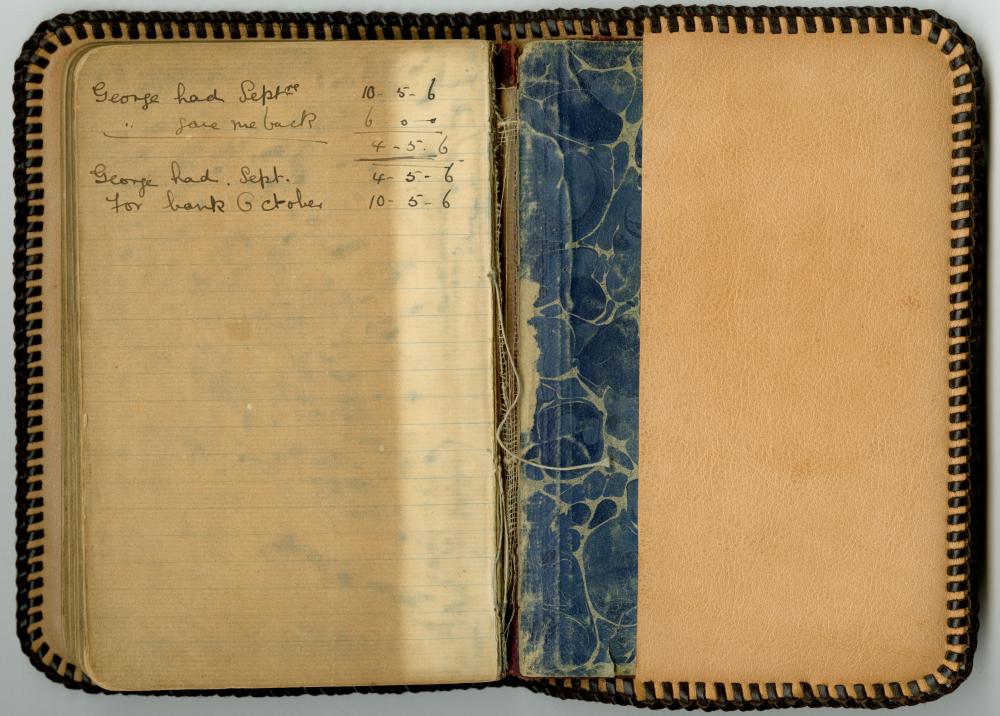 George had Septre 10- 5- 6
" gave me back 6 o - o
4 - 5. 6
George had. Sept. 4- 5- 6
For bank October 10- 5- 6